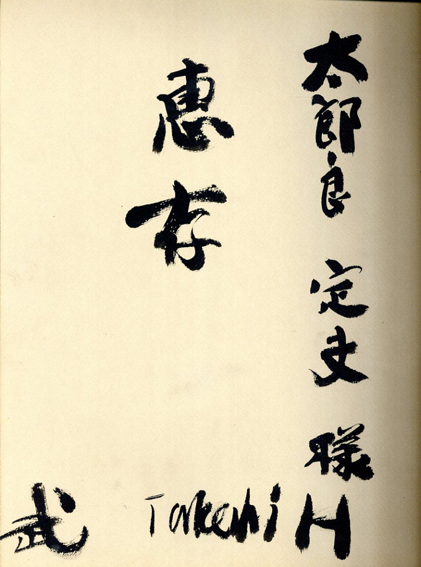 太郎良 定夫 様
恵存
Takeshi H
武